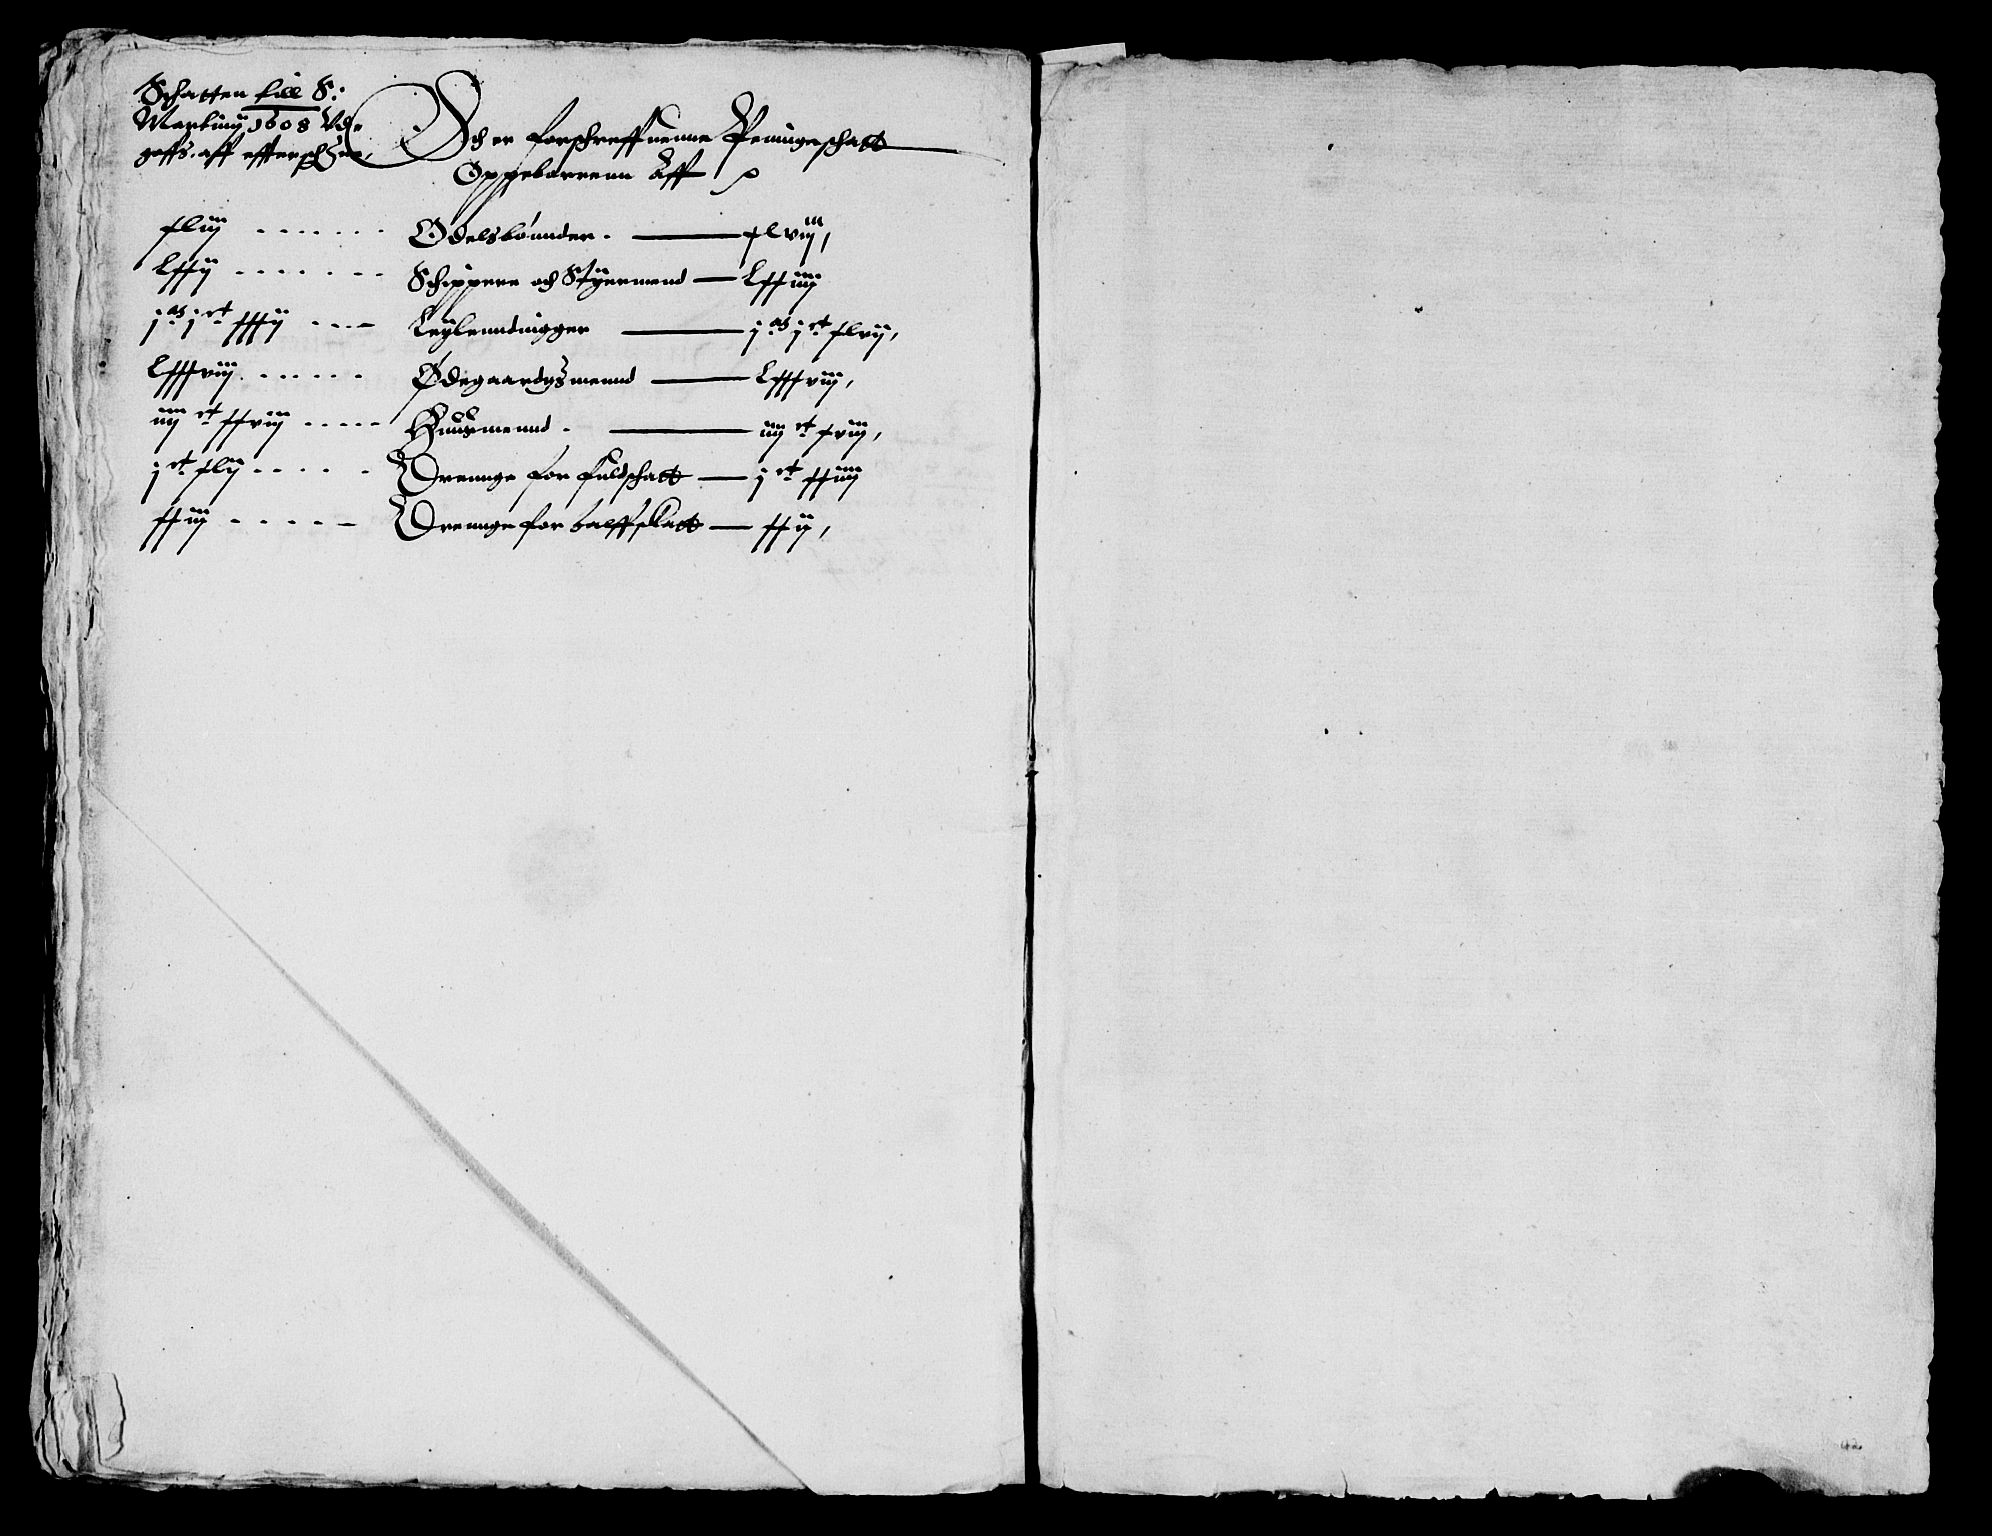 Schatten till S:
Martinij 1608 Vd-
gaffs aff effterschne,
Och er forschreffnenne Peningeschatt
Oppebarrenn Aff
xliij ....... Odelsbønnder. — xlviij,
Lxxij ....... Schippere och Styermend — Lxxiiij
j M j ct xxxij .... Leylenndinngger — j M j ct xlvij,
Lxxxviij ...... Ødegaardtzmennd — Lxxxviij,
iiij ct xxviij ..... Huusmennd. — iiij ct xviij,
j ct xlij ..... Drennge for fuldschatt — j ct xxiiij
xxiij ...... Drennge for halffskatt — xxij,